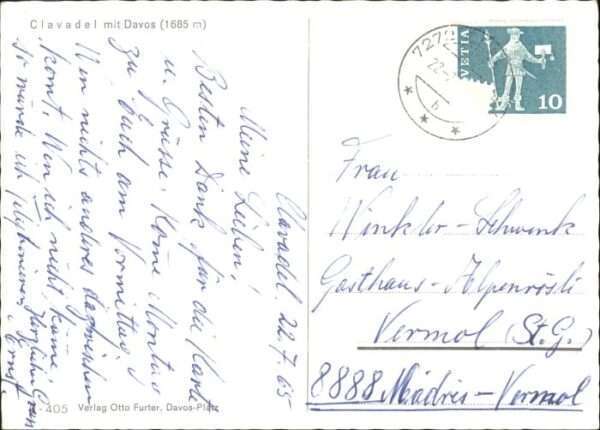 Clavadel mit Davos (1685 m)
Clavadel. 22.7.65
Meine Lieben!
Besten Dank für die Karte
u. Grüsse. Kome Montags
zu Euch am Vormittag.
Wen nichts anderes dazwischen
komt. Wen ich nicht käme,
so würde ich telephonieren.
Herzlichen Gruss
Ernst.
405 Verlag Otto Furter, Davos-Platz
7272
22.-7
b
HELVETIA
10
Frau
Winkler-Schwenk
Gasthaus-Alpenrösli
Vermol (St.G.)
8888 Mädris-Vermol